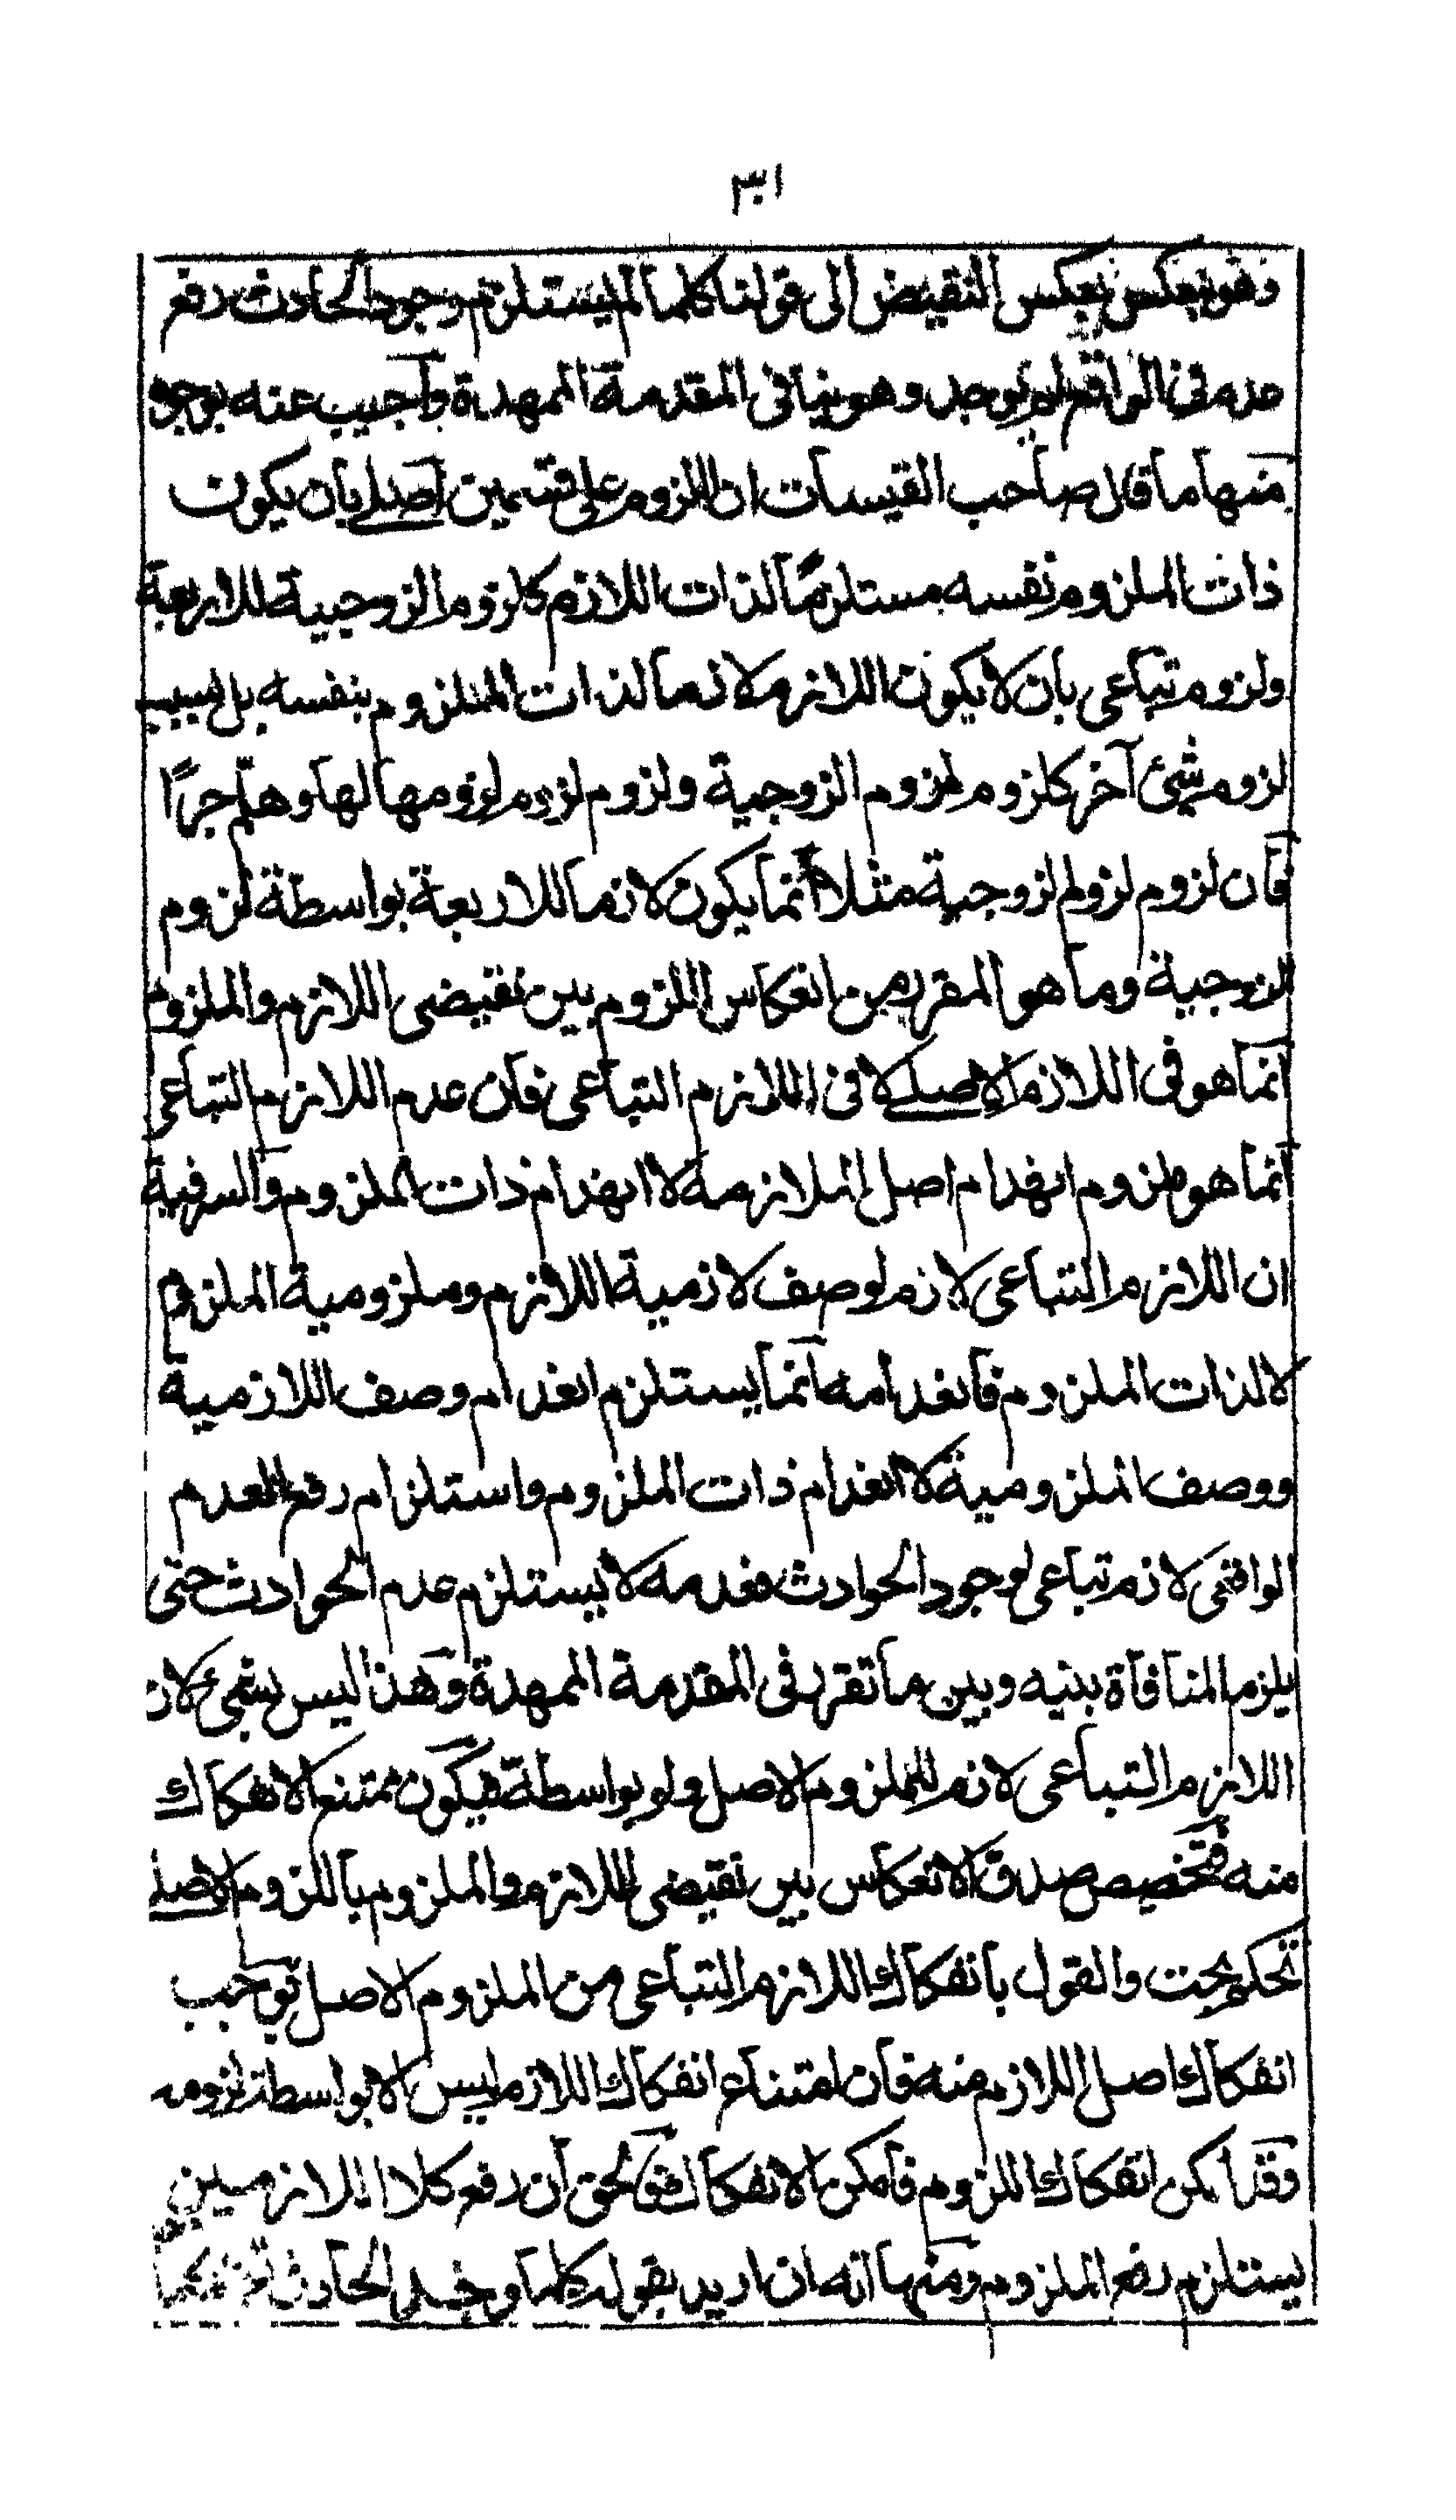 ٣٠١
وهو ينعكس بعكس النقيض الى قولنا كلما لم يستلزم وجود الحادث رفع
عدمه فى الواقع لم يوجد وهو ينافى المقدمة الممهدة وأجيب عنه بوجوه
منها ما قال صاحب القبسات ان اللزوم على قسمين اصلي بان يكون
ذات الملزوم نفسه مستلزمًا لذات اللازم كلزوم الزوجية للاربعة
ولزوم تباعى بان لا يكون اللازم لازما لذات الملزوم بنفسه بل بسبب
لزوم شئ آخر كلزوم لزوم الزوجية ولزوم لزوم لزومها لها وهلم جرًا
فان لزوم لزوم الزوجية مثلا انما يكون لازما للاربعة بواسطة لزوم
الزوجية وما هو المقرر من انعكاس اللزوم بين نقيضى اللازم والملزوم
انما هو فى اللازم الاصلے لا فى اللازم التباعى فان عدم اللازم التباعى
انما هو ملزوم انعدام اصل الملازمة لا انعدام ذات الملزوم والسر فيه
ان اللازم التباعى لازم لوصف لازمية اللازم وملزومية الملزوم
لا لذات الملزوم فانعدامه انما يستلزم انعدام وصف اللازمية
ووصف الملزومية لا انعدام ذات الملزوم واستلزام رفع العدم
الواقعى لازم تباعى لوجود الحوادث فعدمه لا يستلزم عدم الحوادث حتى
يلزم المنافاة بينه وبين ما تقرر فى المقدمة الممهدة وهذا ليس بشئ لان
اللازم التباعى لازم للملزوم الاصل ولو بواسطة فيكون ممتنع الانفكاك
منه فتخصيص صدق الانعكاس بين نقيضى اللازم والملزوم باللزوم الاصلے
تحكم بحت والقول بانفكاك اللازم التباعى من الملزوم الاصل يوجب
انفكاك اصل اللازم منه فان امتناع انفكاك اللازم ليس الا بواسطة لزومه
وقد امكن انفكاك اللزوم فامكن الانفكاك فالحق ان رفع كلا اللازمين
يستلزم رفع الملزوم ومنها انه ان اريد بقوله كلما وجد الحادث